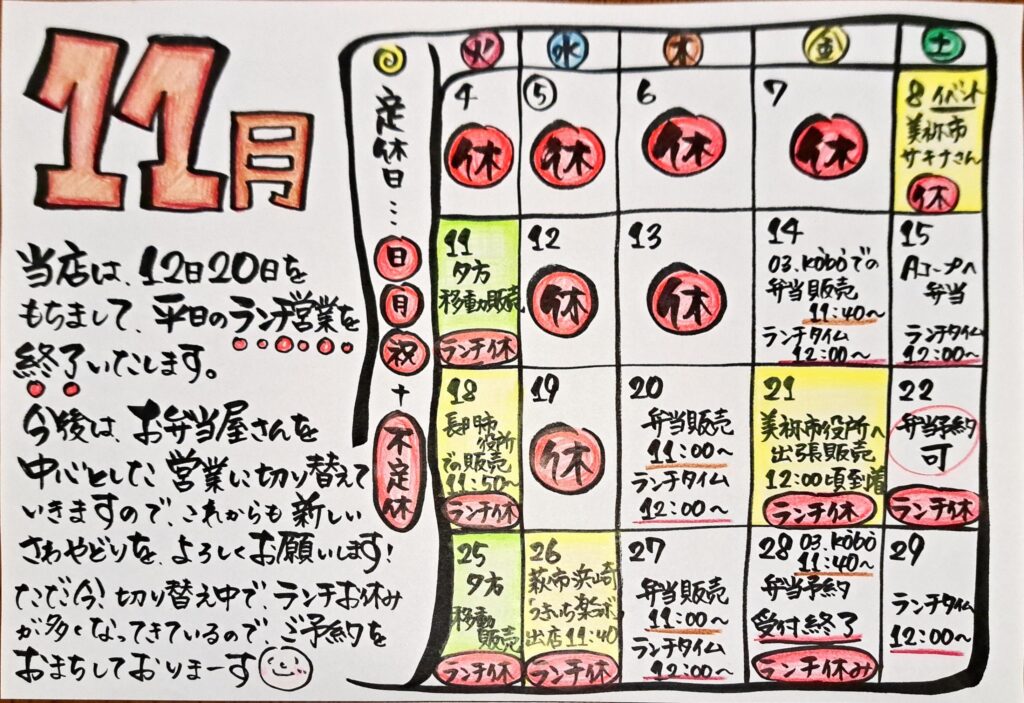 11月
当店は、12日20日を
もちまして、平日のランチ営業を
終了いたします。
今後は、お弁当屋さんを
中心とした、営業に切り替えて
いきますので、これからも新しい
さわやどりを、よろしくお願いします!
ただ今、切り替え中で、ランチお休み
が多くなってきているので、ご予約を
おまちしておりまーす
定休日…
日
月
祝
+
不定休
火 水 木 金 土
4
休
5
休
6
休
7
休
8 イベント
美祢市
サキナさん
休
11
夕方
移動販売
ランチ休
12
休
13
休
14
03.kobòでの
弁当販売
11:40〜
ランチタイム
12:00〜
15
Aコープへ
弁当
ランチタイム
12:00〜
18
長門市
役所
での販売
11:50〜
ランチ休
19
休
20
弁当販売
11:00〜
ランチタイム
12:00〜
21
美祢市役所へ
出張販売
12:00頃到着
ランチ休
22
弁当予約
可
ランチ休
25
夕方
移動
販売
ランチ休
26
萩市浜崎
出店11:40
ランチ休
27
弁当販売
11:00〜
ランチタイム
12:00〜
28 03.kobò
11:40〜
弁当予約
受付終了
ランチ休み
29
ランチタイム
12:00〜